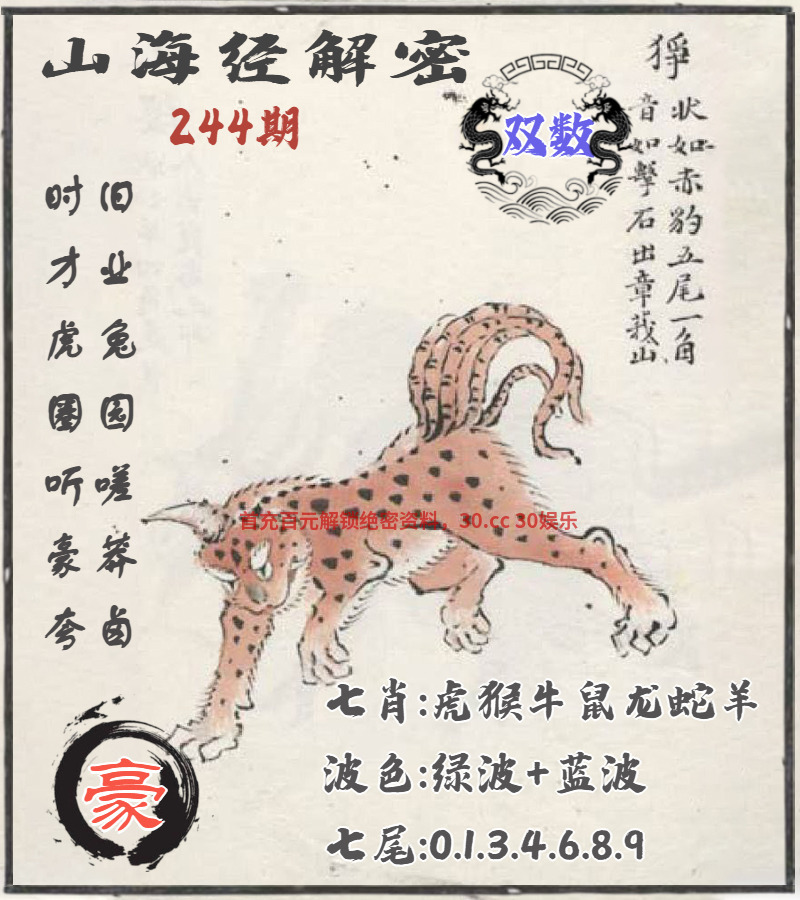 山海经解密
244期
双数
狰
状如赤豹五尾一角
音如擊石出章莪山
时旧
才业
虎兔
圈园
听嗟
豪莽
夸卤
首充百元解锁绝密资料，30.cc 30娱乐
七肖:虎猴牛鼠龙蛇羊
波色:绿波+蓝波
七尾:0.1.3.4.6.8.9
豪